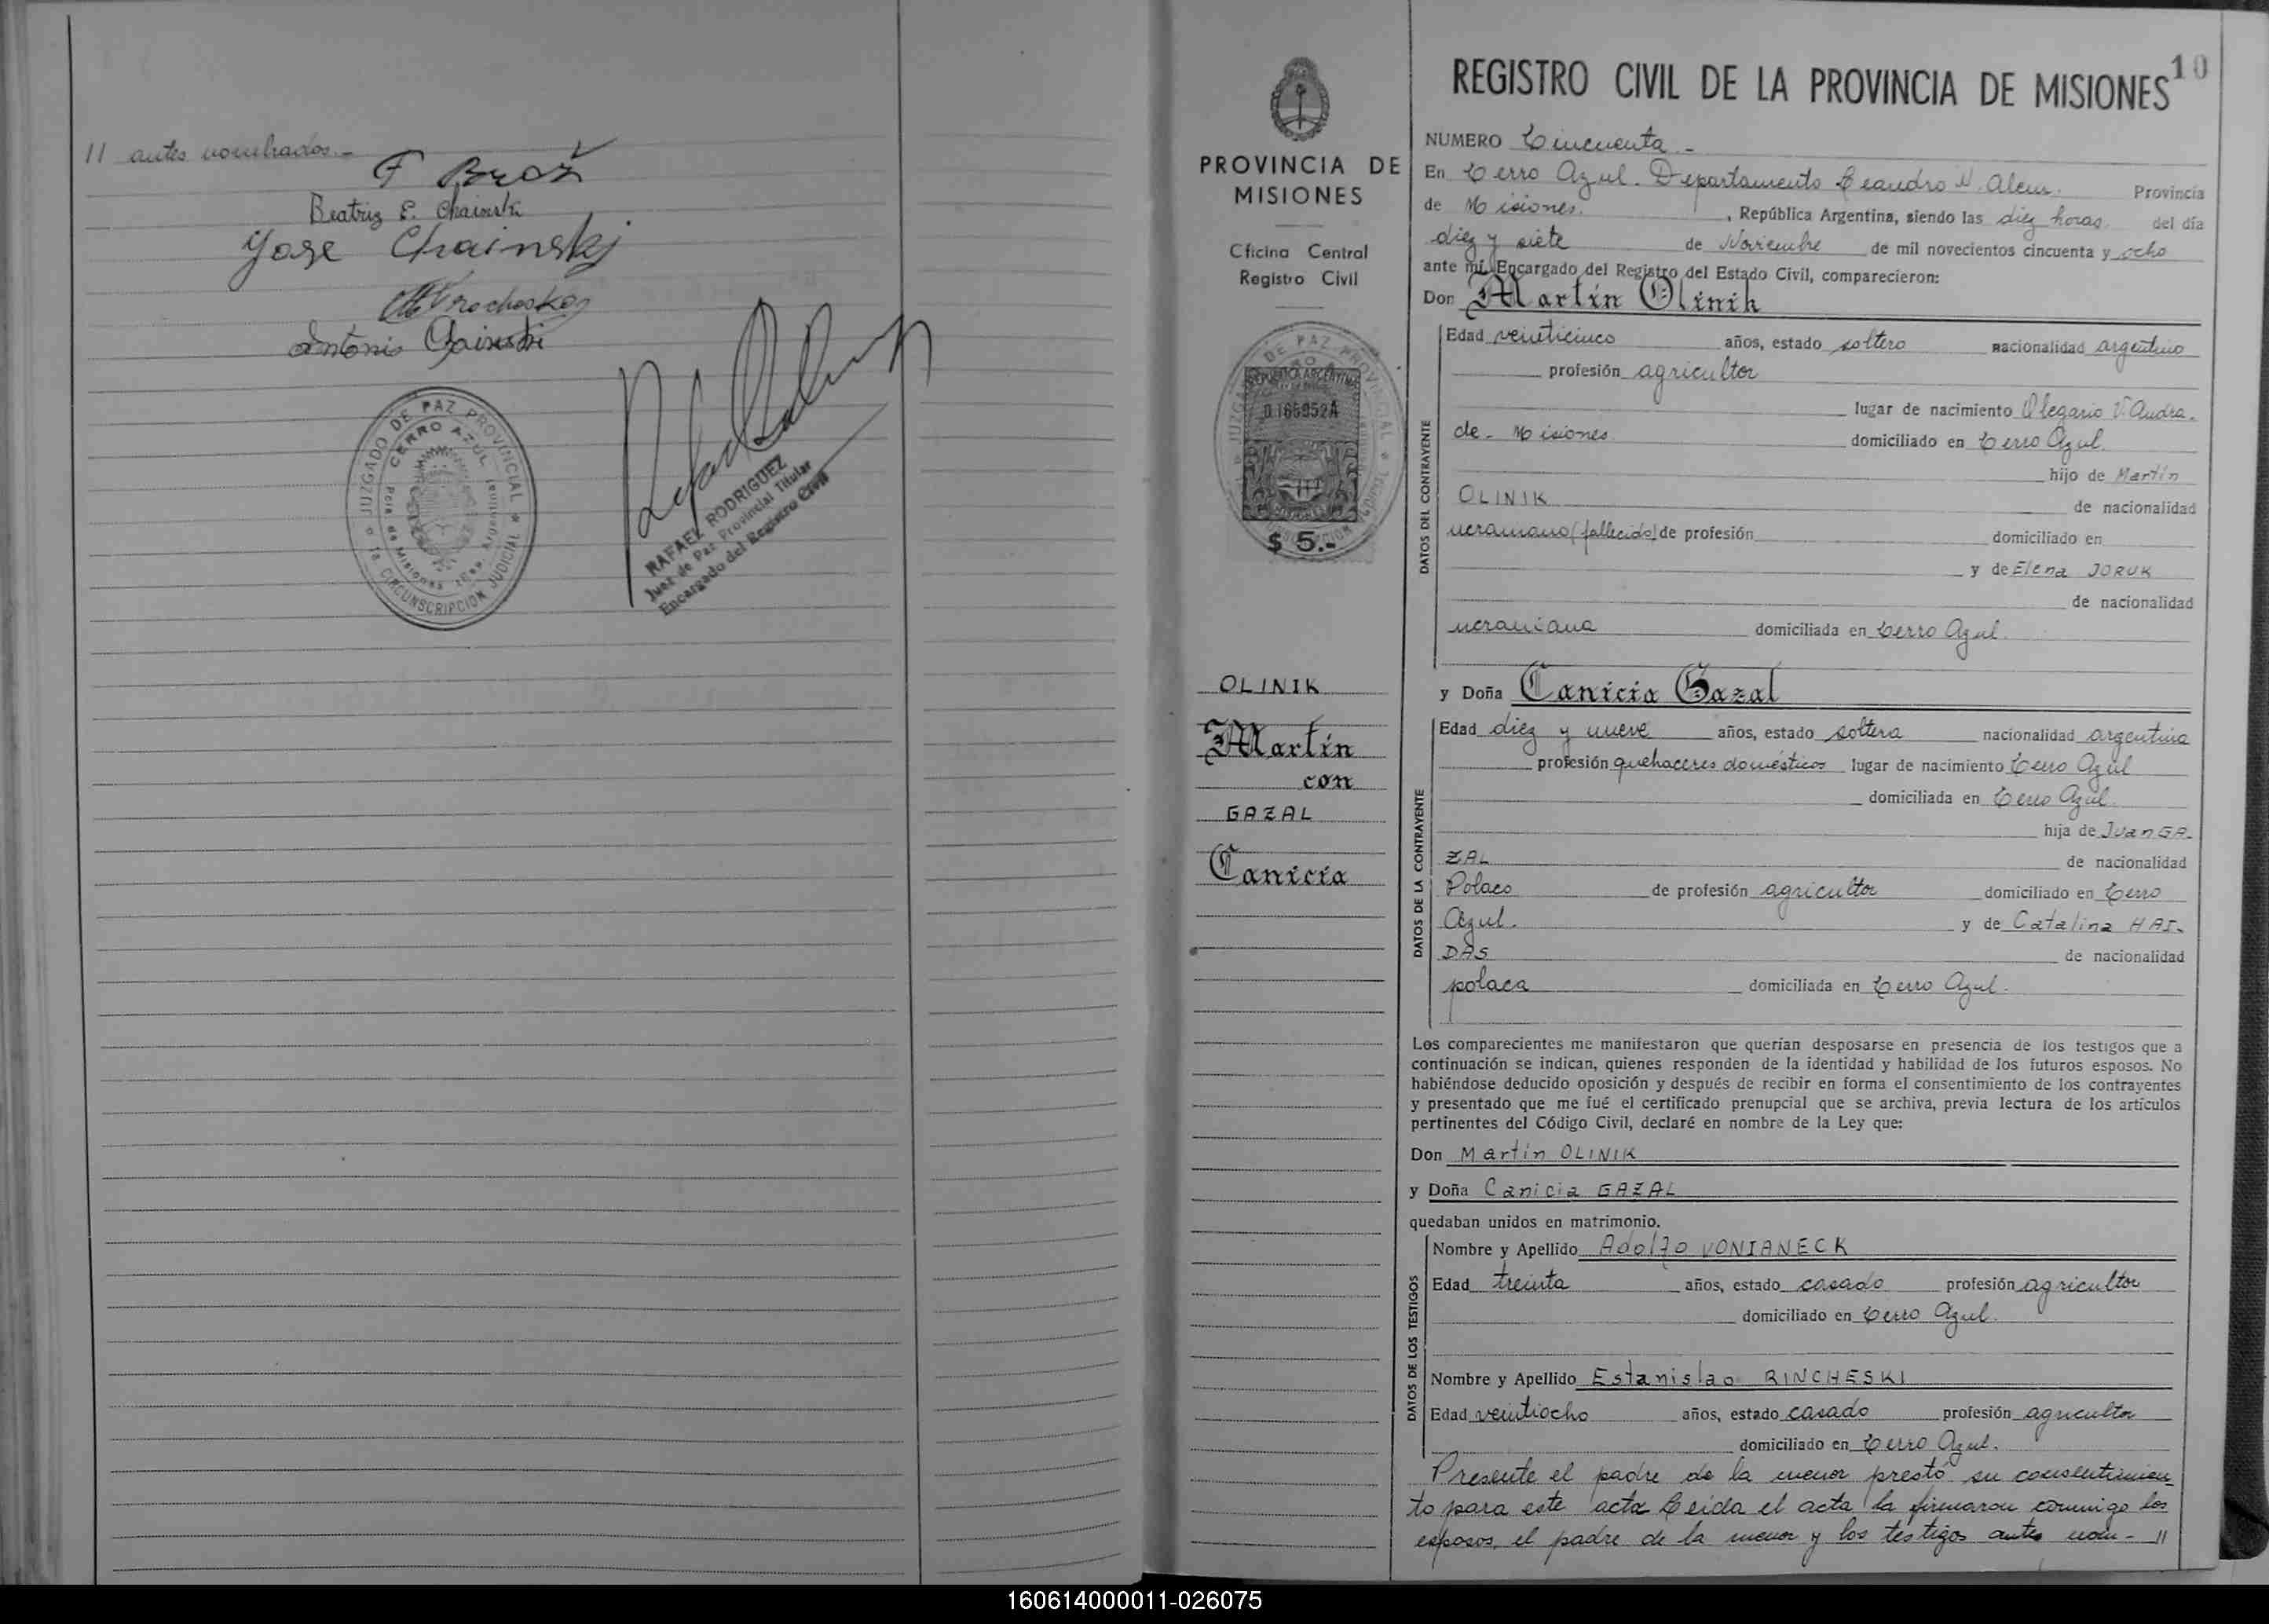 11 antes nombrados.-
F Brož
Beatriz E. Chainski
Jose Chainskij
Antonio Chainski
JUZGADO DE PAZ PROVINCIAL * 1a CIRCUNSCRIPCION JUDICIAL *
CERRO AZUL
Pcia. de Misiones
RAFAEL RODRIGUEZ
Juez de Paz Provincial Titular
Encargado del Registro Civil
PROVINCIA DE
MISIONES
Oficina Central
Registro Civil
JUZGADO DE PAZ PROVINCIAL
REPUBLICA ARGENTINA
0.165952A
$ 5.-
OLINIK
Martín
con
GAZAL
Canicia
10
REGISTRO CIVIL DE LA PROVINCIA DE MISIONES
NUMERO Cincuenta -
En Cerro Azul. Departamento Leandro N. Alem. Provincia
de Misiones. , República Argentina, siendo las diez horas. del día
diez y siete de Noviembre de mil novecientos cincuenta y ocho
ante mí, Encargado del Registro del Estado Civil, comparecieron:
Don Martín Olinik
DATOS DEL CONTRAYENTE
Edad veinticinco años, estado soltero nacionalidad argentino
profesión agricultor
lugar de nacimiento Olegario V. Andra-
de - Misiones domiciliado en Cerro Azul.
hijo de Martín
OLINIK de nacionalidad
ucraniano (fallecido) de profesión domiciliado en
y de Elena JORUK
de nacionalidad
ucraniana domiciliada en Cerro Azul.
y Doña Canicia Gazal
DATOS DE LA CONTRAYENTE
Edad diez y nueve años, estado soltera nacionalidad argentina
profesión quehaceres domésticos lugar de nacimiento Cerro Azul
domiciliada en Cerro Azul.
hija de Juan GA-
ZAL de nacionalidad
Polaco de profesión agricultor domiciliado en Cerro
Azul. y de Catalina HAI-
DAS de nacionalidad
polaca domiciliada en Cerro Azul.
Los comparecientes me manifestaron que querían desposarse en presencia de los testigos que a
continuación se indican, quienes responden de la identidad y habilidad de los futuros esposos. No
habiéndose deducido oposición y después de recibir en forma el consentimiento de los contrayentes
y presentado que me fué el certificado prenupcial que se archiva, previa lectura de los artículos
pertinentes del Código Civil, declaré en nombre de la Ley que:
Don Martín OLINIK
y Doña Canicia GAZAL
quedaban unidos en matrimonio.
DATOS DE LOS TESTIGOS
Nombre y Apellido Adolfo VONIANECK
Edad treinta años, estado casado profesión agricultor
domiciliado en Cerro Azul.
Nombre y Apellido Estanislao RINCHESKI
Edad veintiocho años, estado casado profesión agricultor
domiciliado en Cerro Azul.
Presente el padre de la menor prestó su consentimien
to para este acta Leída el acta la firmaron conmigo los
esposos, el padre de la menor y los testigos antes nom- 11
160614000011-026075